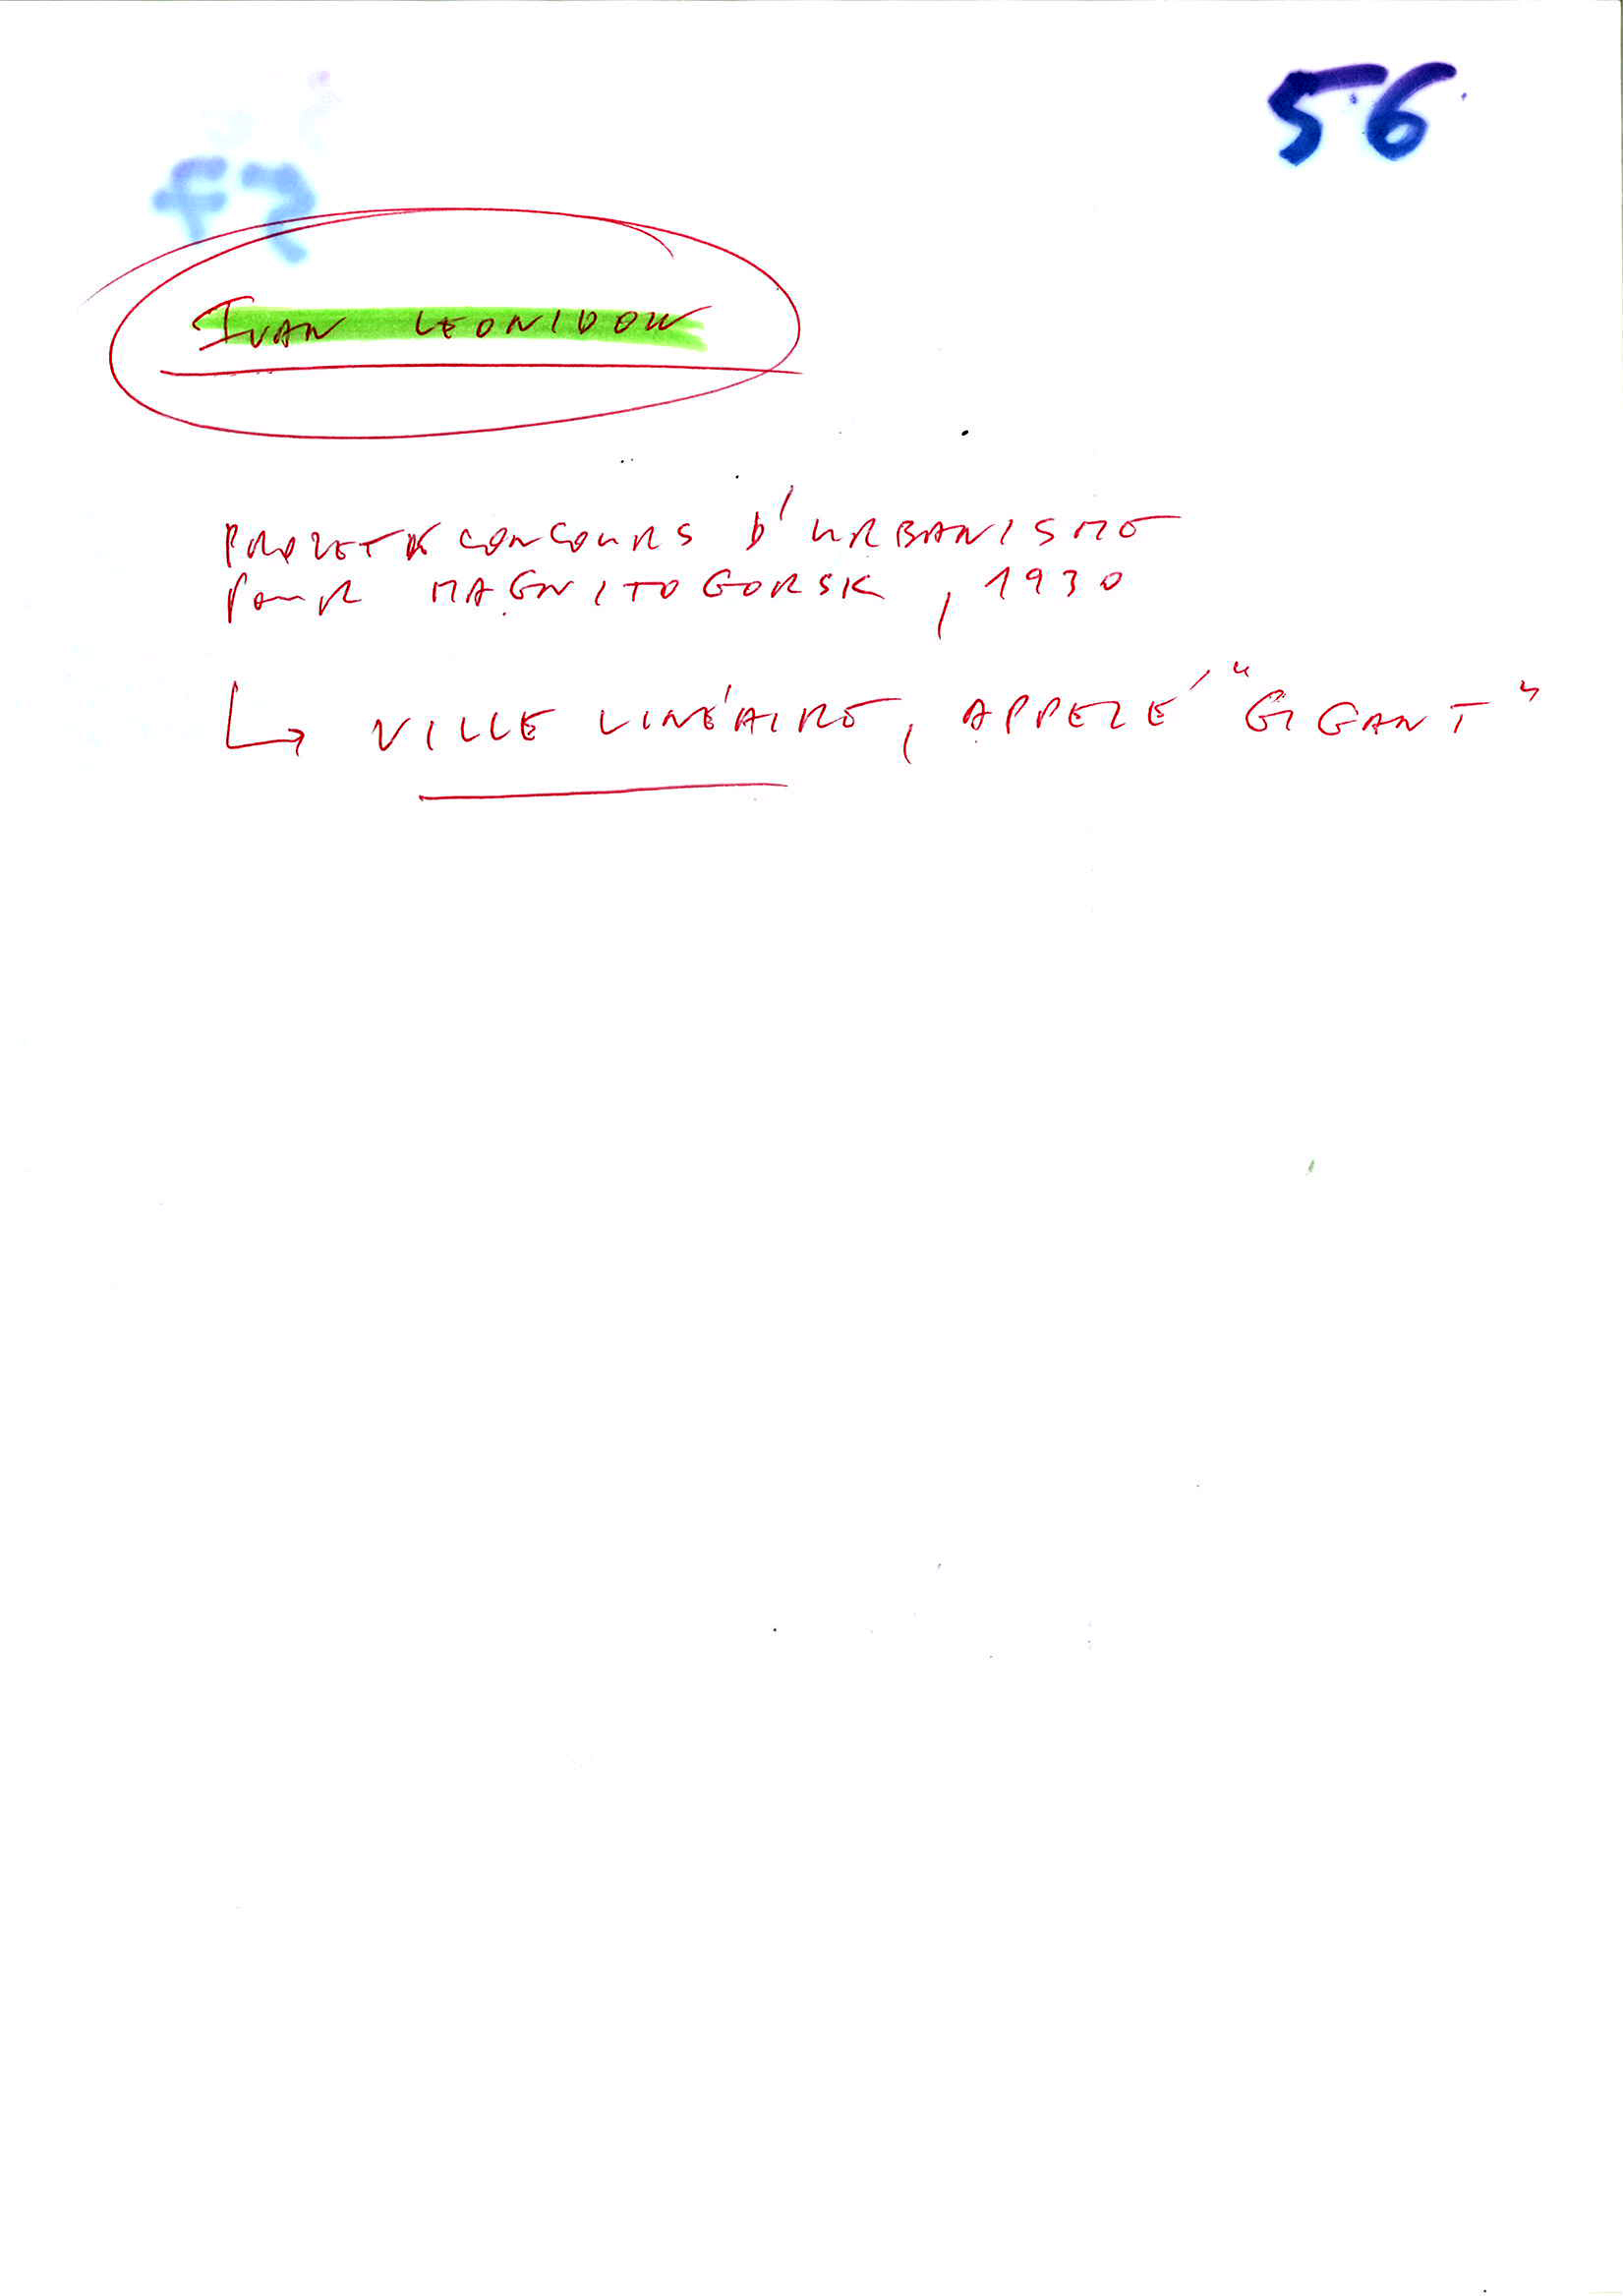 56
IVAN LEONIDOW
PROJET DE CONCOURS D'URBANISME
POUR MAGNITOGORSK, 1930
↳ VILLE LINÉAIRE, APPELÉ "GIGANT"